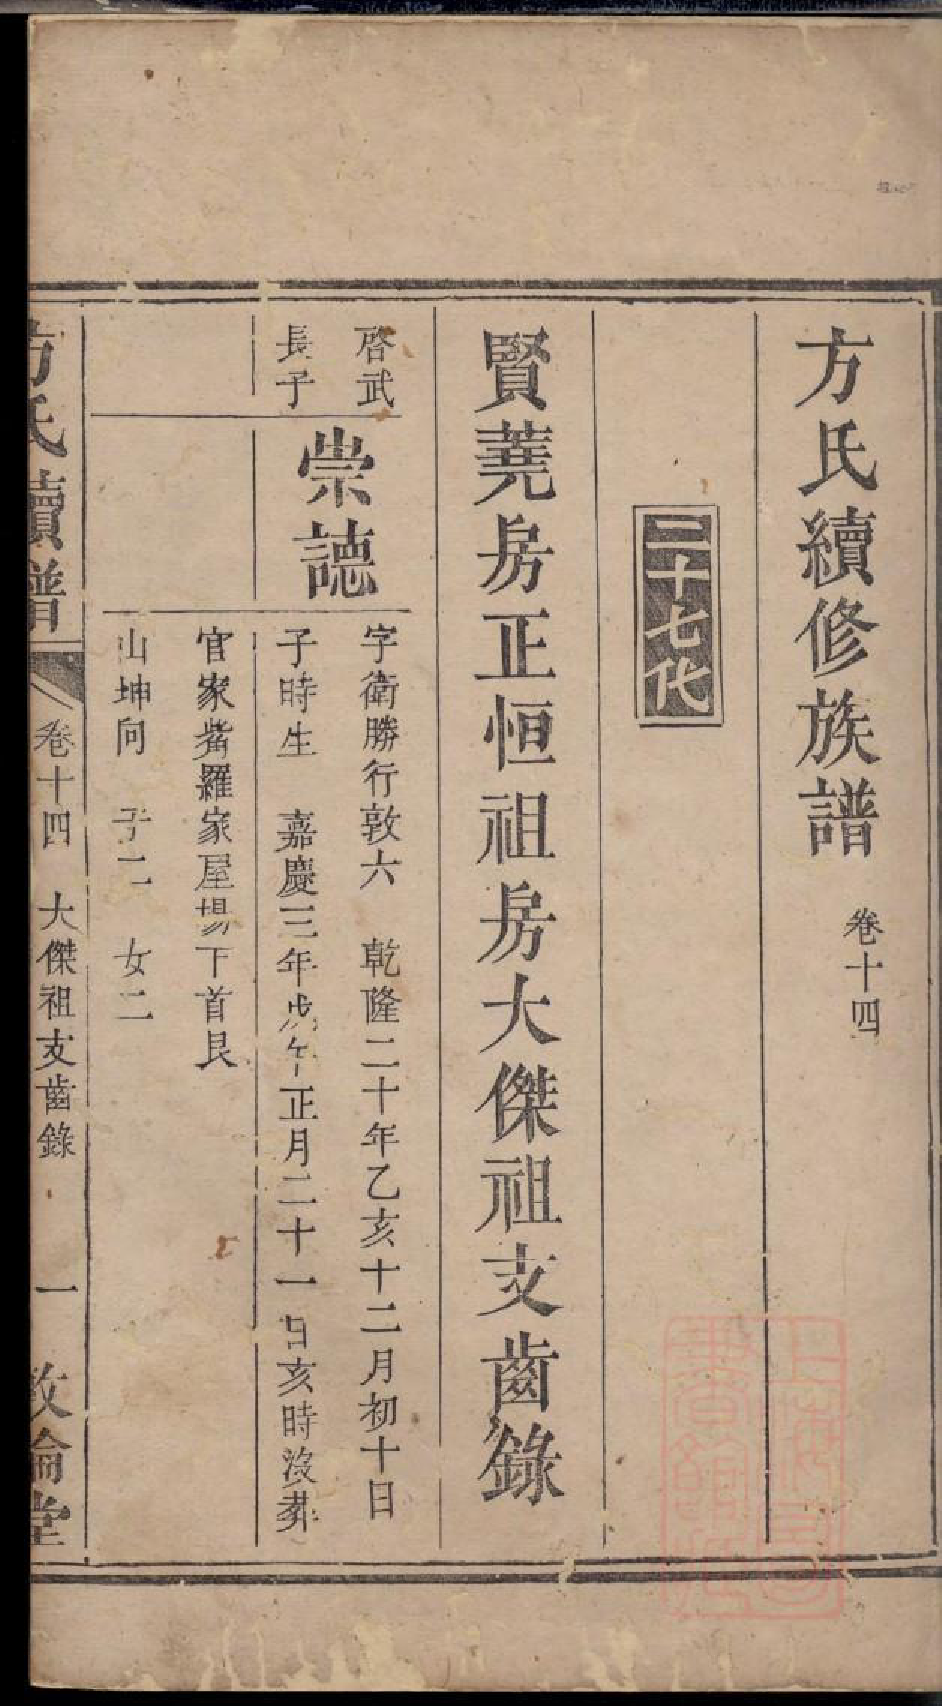 方氏續修族譜 卷十四
二十七代
賢蕘房正恒祖房大傑祖支齒錄
啓武
長子
崇誌
字衛勝行敦六 乾隆二十年乙亥十二月初十日
子時生 嘉慶三年戊午正月二十一日亥時沒葬
官家觜羅家屋場下首艮
山坤向 子二 女二
方氏續譜 卷十四 大傑祖支齒錄 一 敦倫堂